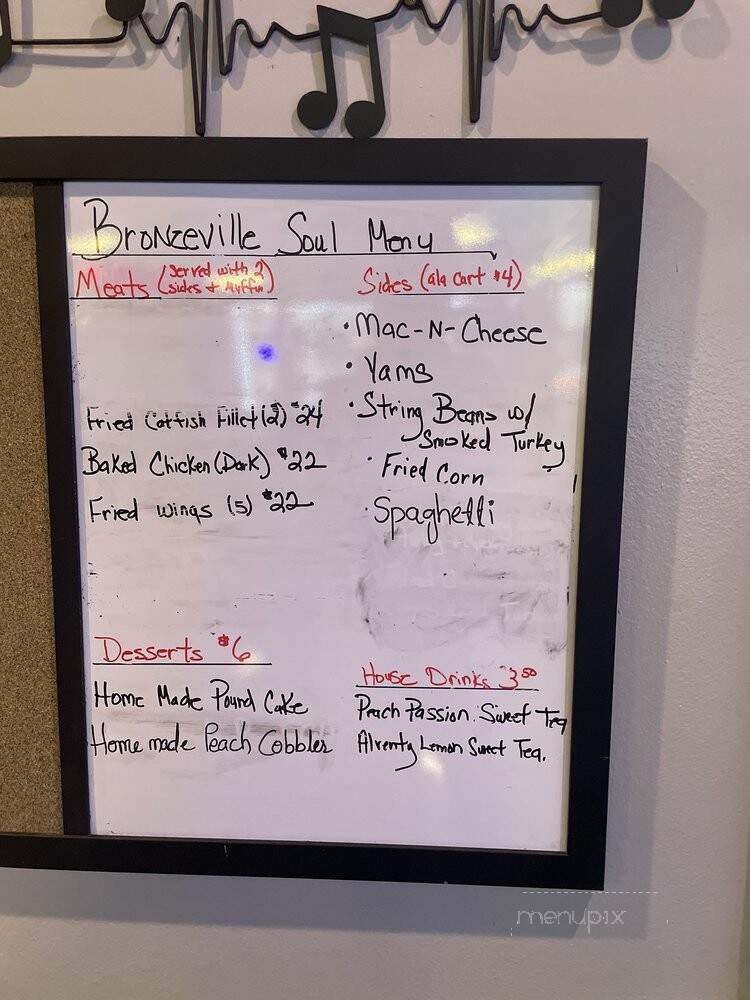 Bronzeville Soul Menu
Meats (served with 2 sides + Muffin)
Fried Catfish Fillet (2) $24
Baked Chicken (Dark) $22
Fried wings (5) $22
Sides (ala cart $4)
• Mac-N-Cheese
• Yams
• String Beans w/
Smoked Turkey
• Fried Corn
• Spaghetti
Desserts $6
Home Made Pound Cake
Home made Peach Cobbler
House Drinks $3.50
Peach Passion Sweet Tea
Lemon Sweet Tea.
menupix